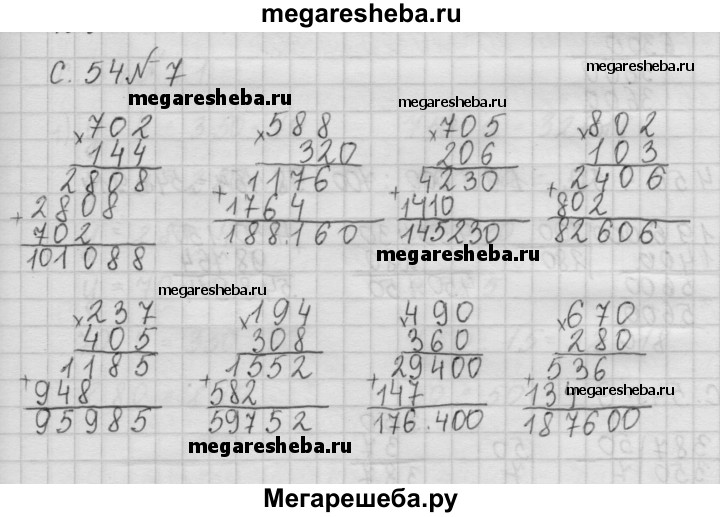 megaresheba.ru
С. 54 № 7
megaresheba.ru
megaresheba.ru
× 702 × 588 × 705 × 802
144 320 206 103
2808 1176 4230 2406
+ 2808 + 1764 + 1410 + 802
702 188.160 145230 82606
101088
megaresheba.ru
megaresheba.ru
× 237 × 194 × 490 × 670
405 308 360 280
1185 1552 29400 536
+ 948 + 582 + 147 + 13
95985 59752 176.400 187600
megaresheba.ru
megaresheba.ru
Мегарешеба.ру